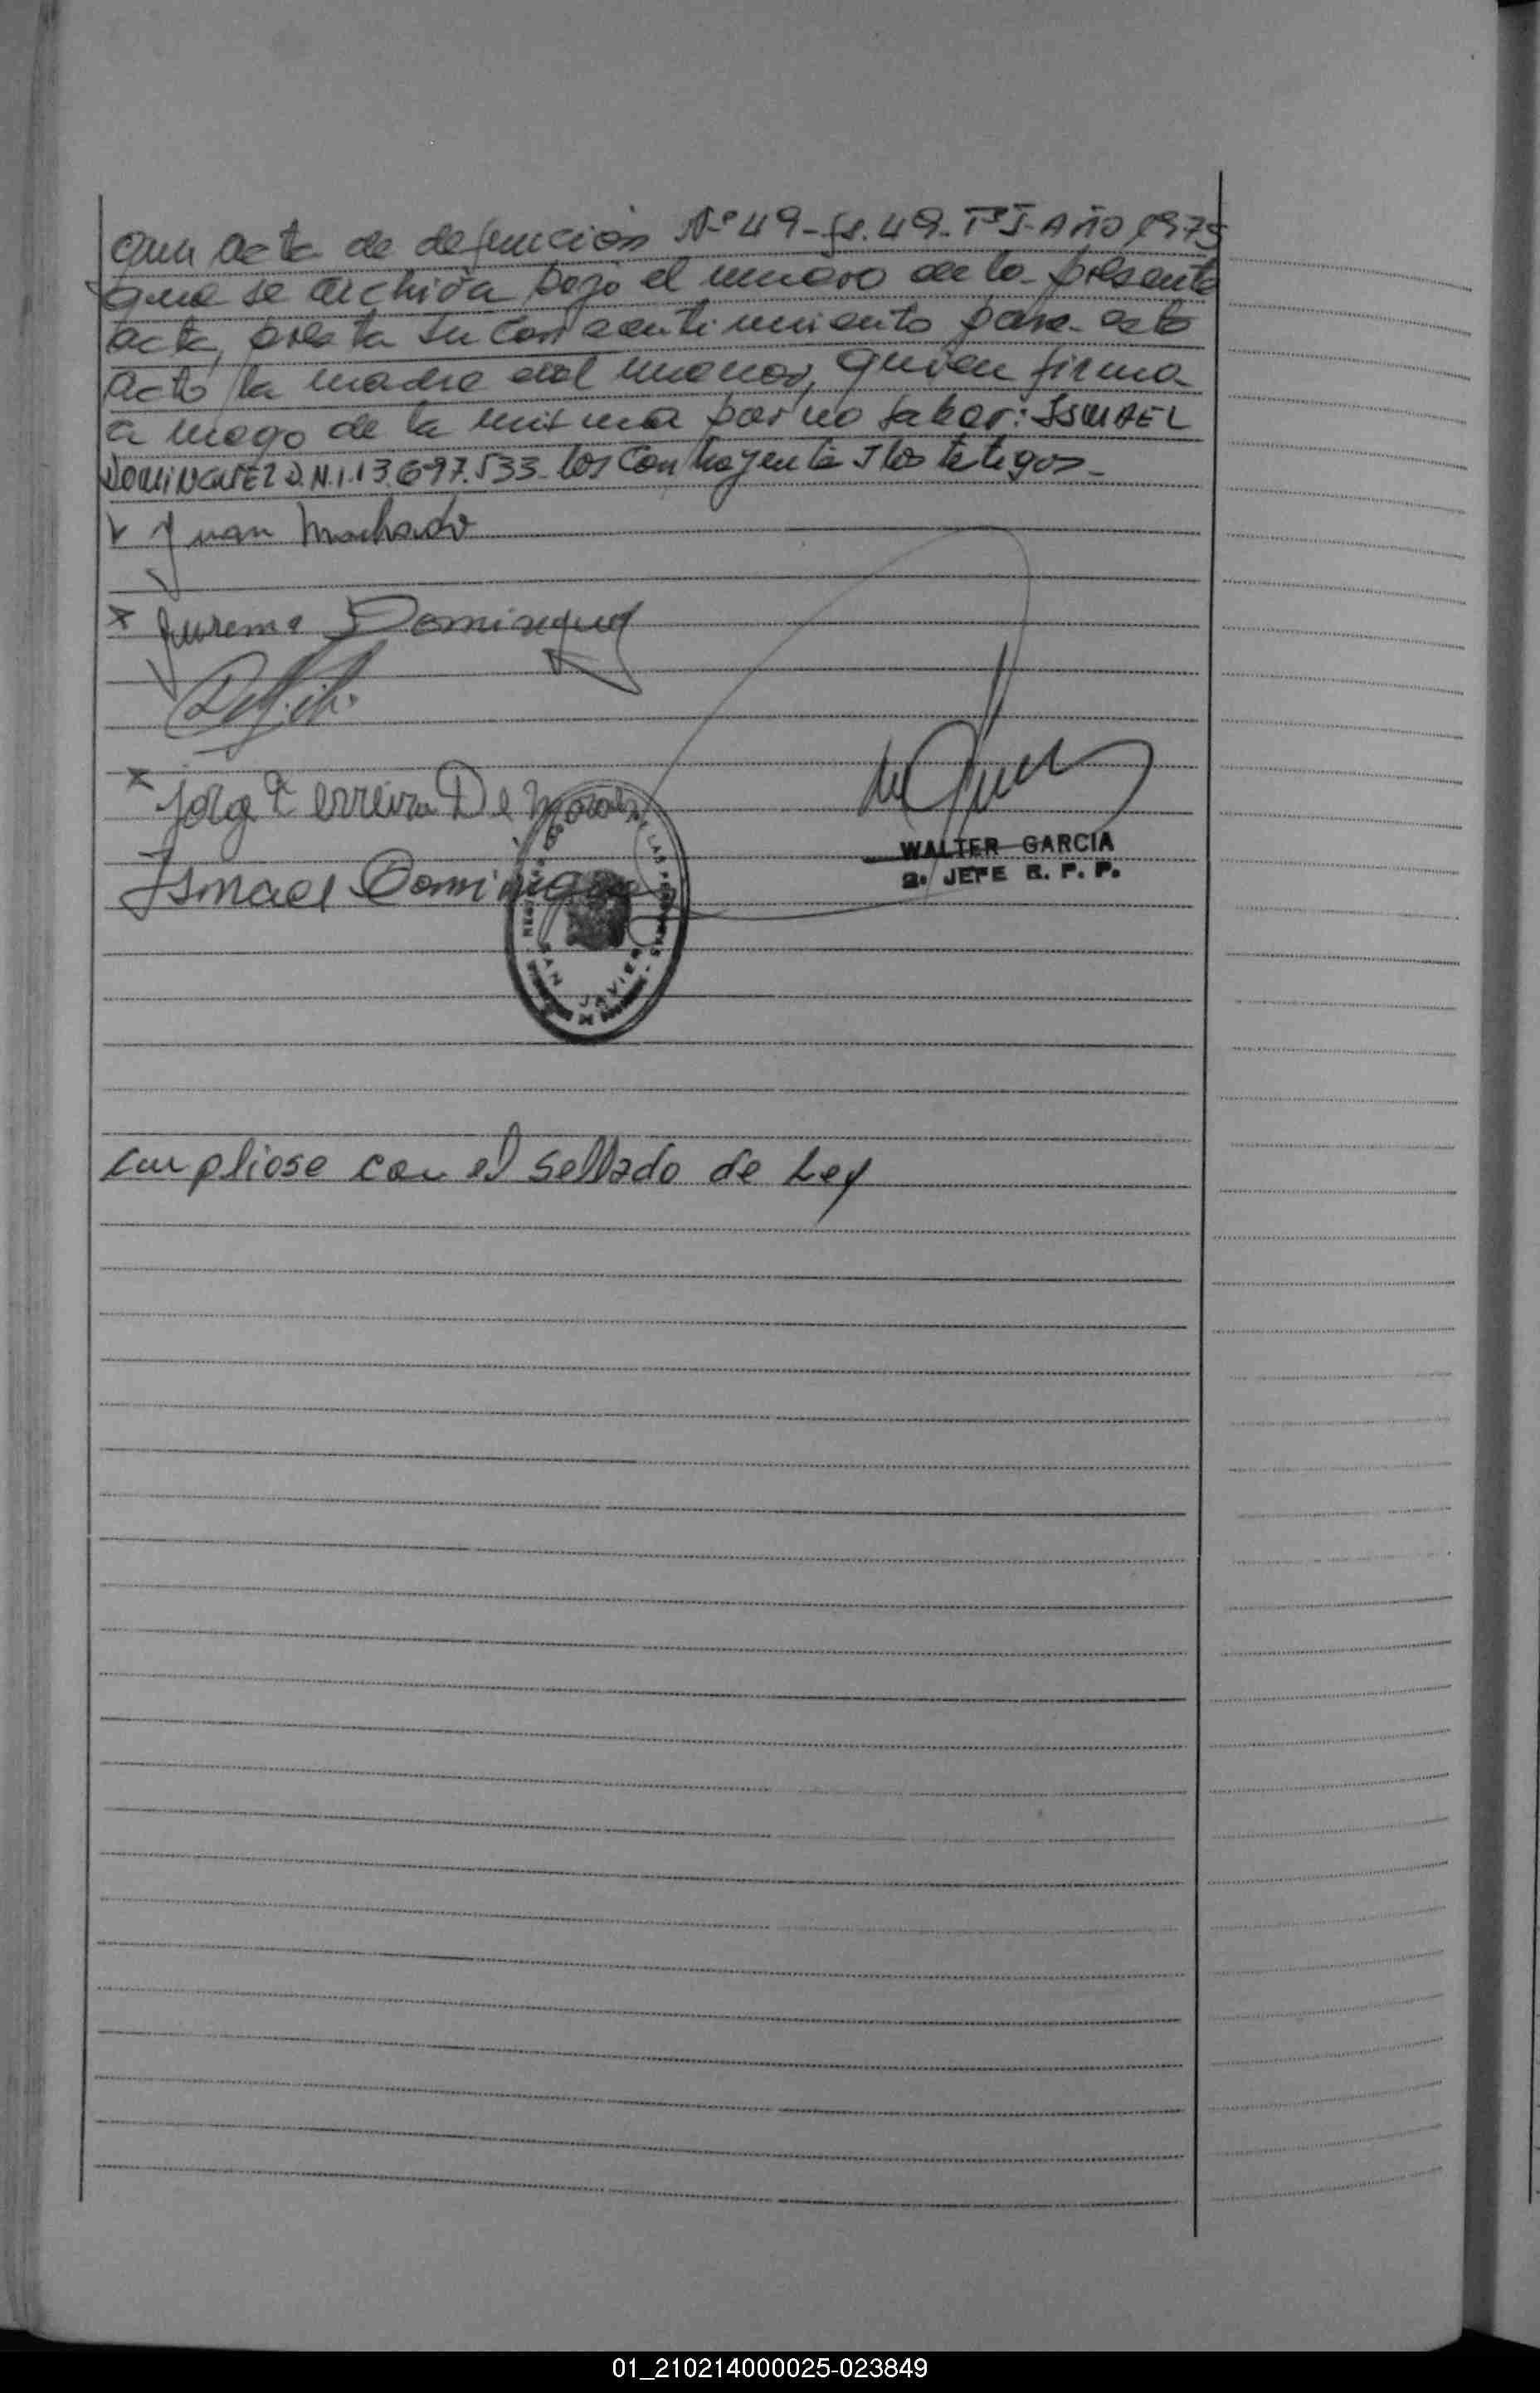 acta de defunción Nº 49-fs. 49-Tº I-AÑO 1975
que se archiva bajo el número de la presente
acta, presta su consentimiento para este
acto la madre del menor, quien firma
a ruego de la misma por no saber: ISMAEL
DOMINGUEZ D.N.I. 13.697.533- los contrayente y los testigos-
Juan Machado
Jurema Dominguez
Jorge Ferreira De Moraes
Ismael Dominguez
WALTER GARCIA
2º JEFE R. P. P.
REGISTRO LAS PERSONAS
SAN JAVIER
Cumpliose con el sellado de Ley
01_210214000025-023849